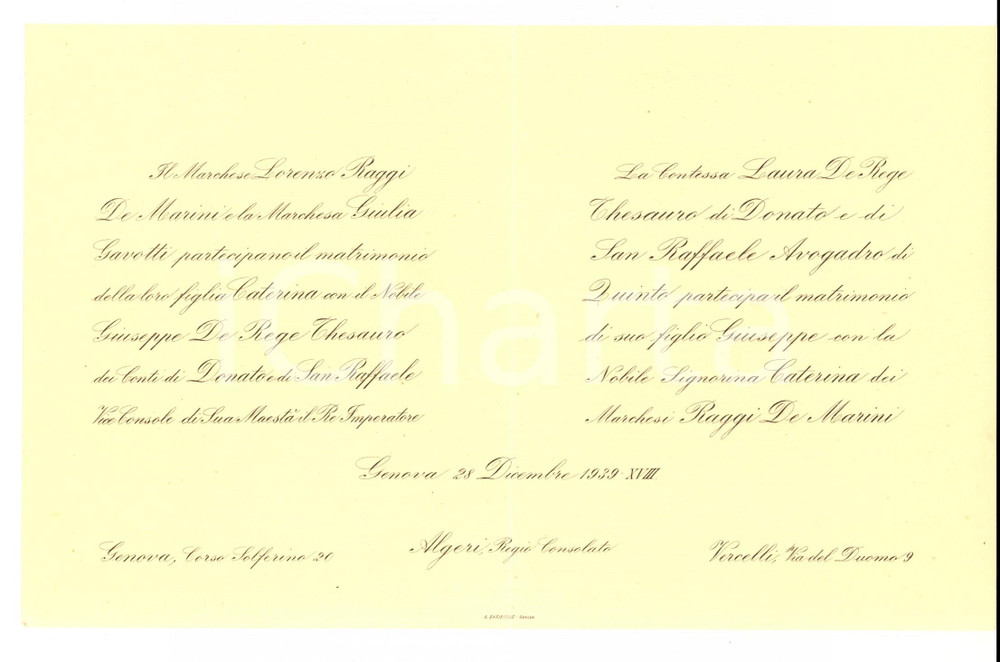 Il Marchese Lorenzo Raggi
De Marini e la Marchesa Giulia
Gavotti partecipano il matrimonio
della loro figlia Caterina con il Nobile
Giuseppe De Rege Thesauro
dei Conti di Donato e di San Raffaele
Vice Console di Sua Maestà il Re Imperatore
La Contessa Laura De Rege
Thesauro di Donato e di
San Raffaele Avogadro di
Quinto partecipa il matrimonio
di suo figlio Giuseppe con la
Nobile Signorina Caterina dei
Marchesi Raggi De Marini
Genova 28 Dicembre 1939-XVIII
Genova, Corso Solferino 20
Algeri, Regio Consolato
Vercelli, Via del Duomo 9
iCharta